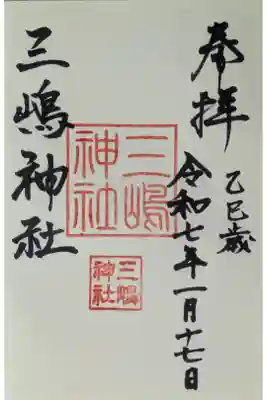 奉拝
乙巳歳
令和七年一月十七日
三嶋神社
三嶋神社
三嶋神社